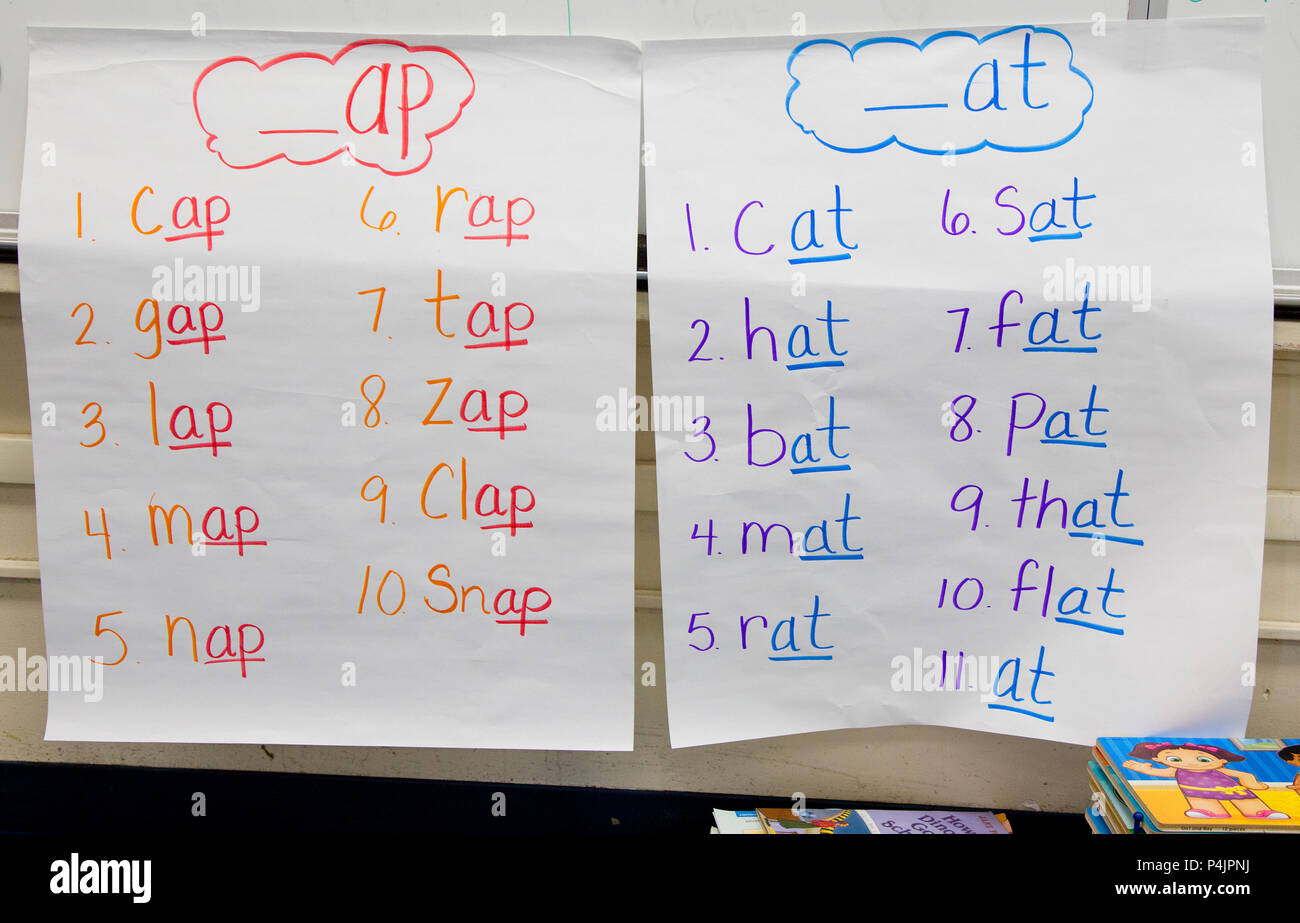 __ap
1. Cap
2. gap
3. lap
4. map
5. nap
6. rap
7. tap
8. Zap
9. Clap
10. Snap
__at
1. Cat
2. hat
3. bat
4. mat
5. rat
6. Sat
7. fat
8. Pat
9. that
10. flat
11. at
alamy
alamy stock photo
P4JPNJ
www.alamy.com